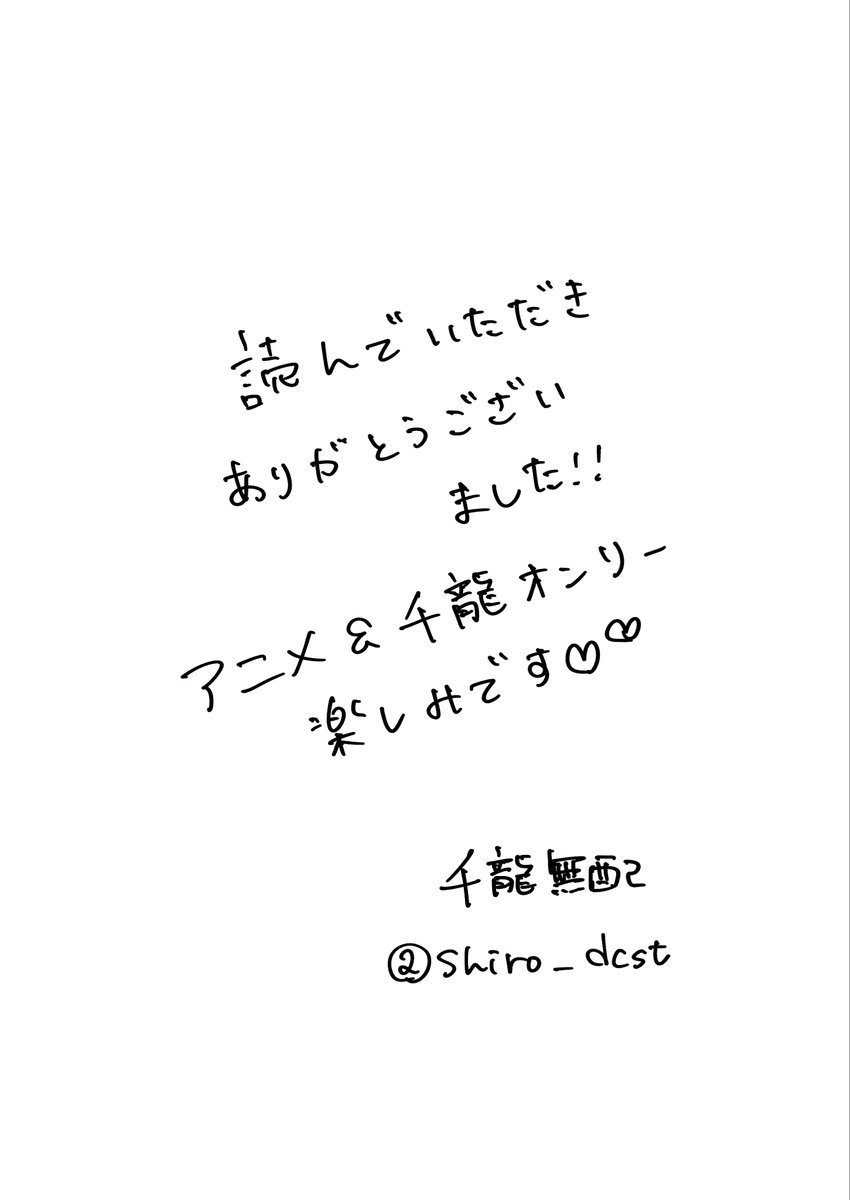 読んでいただき
ありがとうござい
ました!!
アニメ&千龍オンリー
楽しみです♡♡
千龍無配
②shiro_dcst